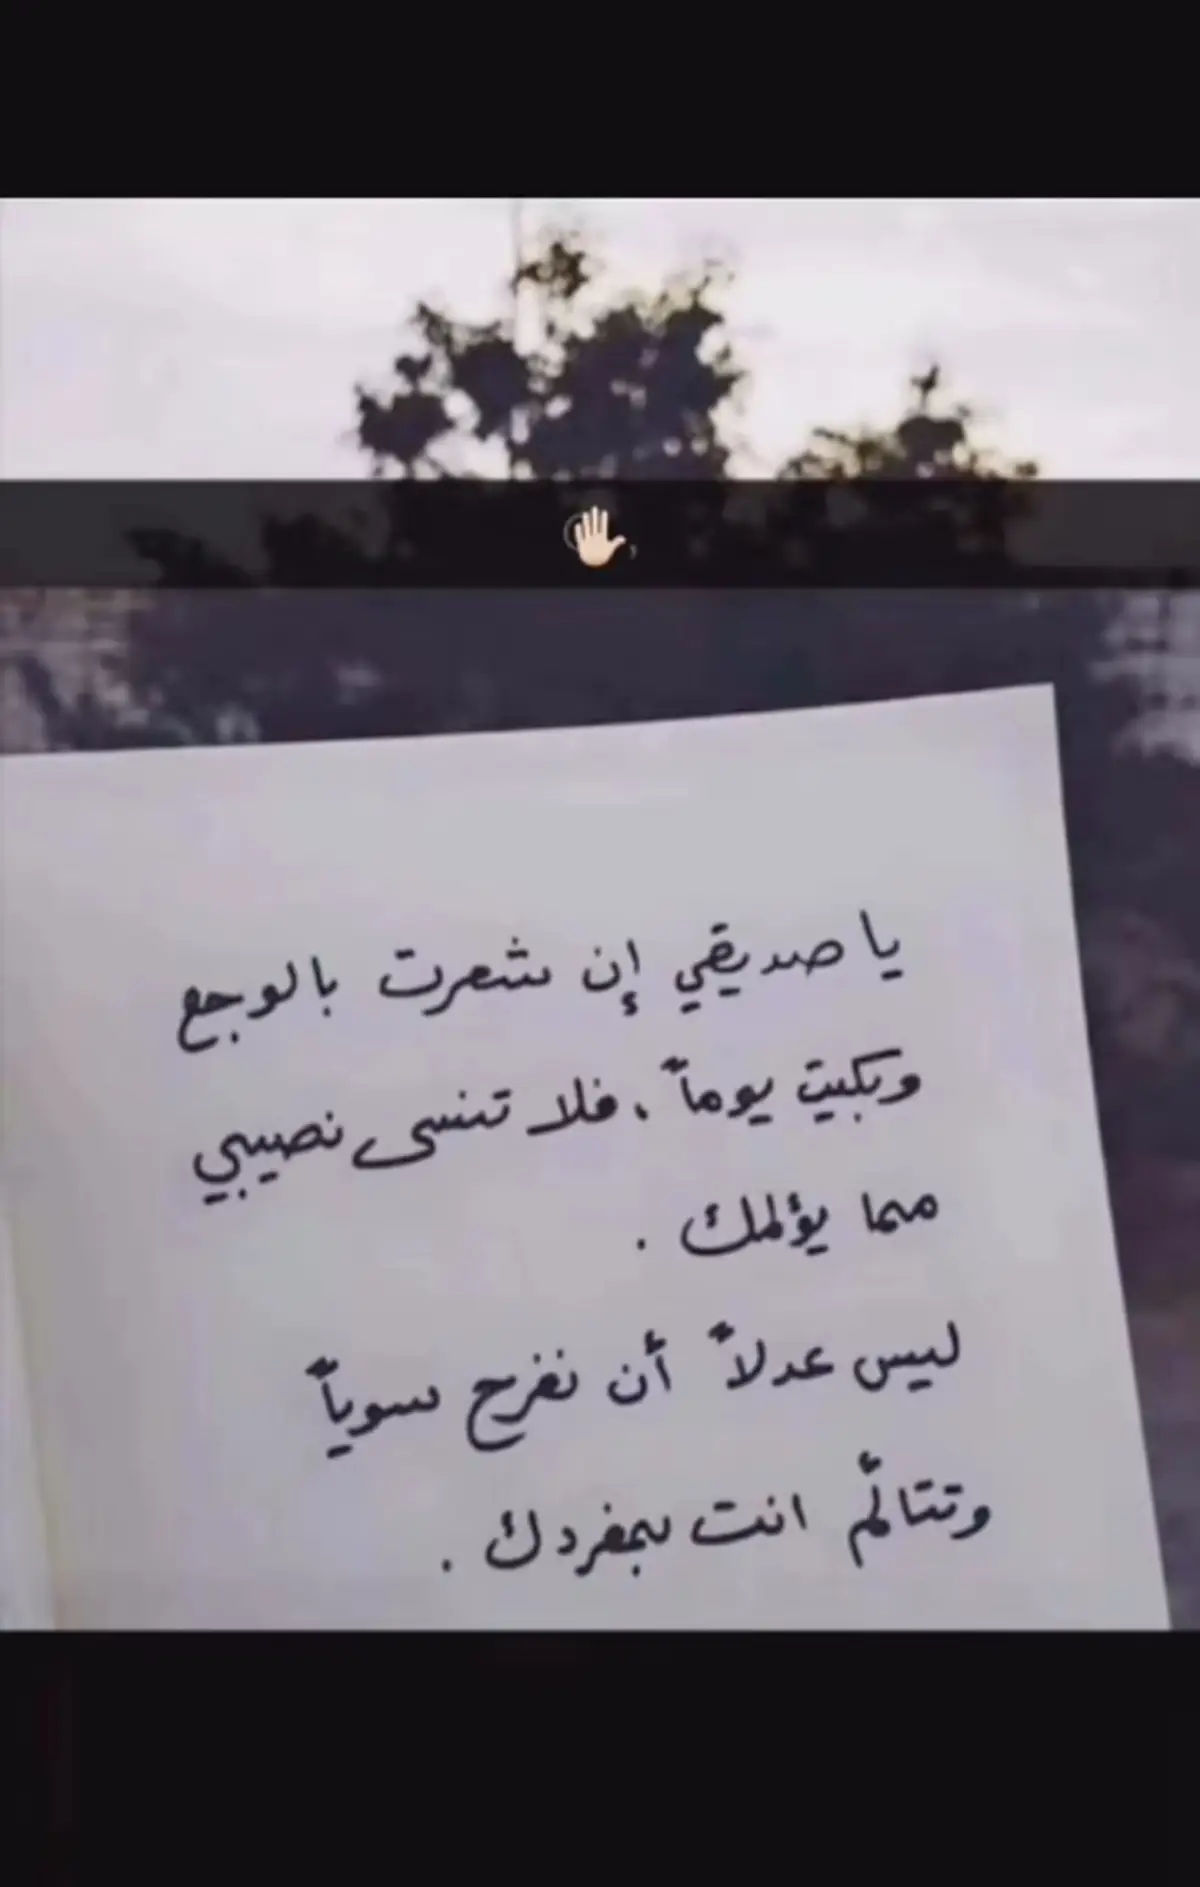 👋🏻
يا صديقي إن شعرت بالوجع
وبكيت يوماً ، فلا تنسى نصيبي
مما يؤلمك .
ليس عدلاً أن نفرح سوياً
وتتألم انت بمفردك .